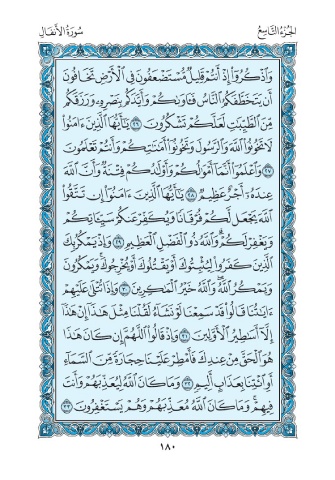 الجزء التاسع
سورة الأنفال
وَاذْكُرُوا إِذْ أَنتُمْ قَلِيلٌ مُّسْتَضْعَفُونَ فِي الْأَرْضِ تَخَافُونَ
أَن يَتَخَطَّفَكُمُ النَّاسُ فَآوَاكُمْ وَأَيَّدَكُم بِنَصْرِهِ وَرَزَقَكُم
مِّنَ الطَّيِّبَاتِ لَعَلَّكُمْ تَشْكُرُونَ ٢٦ يَا أَيُّهَا الَّذِينَ آمَنُوا
لَا تَخُونُوا اللَّهَ وَالرَّسُولَ وَتَخُونُوا أَمَانَاتِكُمْ وَأَنتُمْ تَعْلَمُونَ
٢٧ وَاعْلَمُوا أَنَّمَا أَمْوَالُكُمْ وَأَوْلَادُكُمْ فِتْنَةٌ وَأَنَّ اللَّهَ
عِندَهُ أَجْرٌ عَظِيمٌ ٢٨ يَا أَيُّهَا الَّذِينَ آمَنُوا إِن تَتَّقُوا
اللَّهَ يَجْعَل لَّكُمْ فُرْقَانًا وَيُكَفِّرْ عَنكُمْ سَيِّئَاتِكُمْ
وَيَغْفِرْ لَكُمْ وَاللَّهُ ذُو الْفَضْلِ الْعَظِيمِ ٢٩ وَإِذْ يَمْكُرُ بِكَ
الَّذِينَ كَفَرُوا لِيُثْبِتُوكَ أَوْ يَقْتُلُوكَ أَوْ يُخْرِجُوكَ وَيَمْكُرُونَ
وَيَمْكُرُ اللَّهُ وَاللَّهُ خَيْرُ الْمَاكِرِينَ ٣٠ وَإِذَا تُتْلَىٰ عَلَيْهِمْ
آيَاتُنَا قَالُوا قَدْ سَمِعْنَا لَوْ نَشَاءُ لَقُلْنَا مِثْلَ هَٰذَا إِنْ هَٰذَا
إِلَّا أَسَاطِيرُ الْأَوَّلِينَ ٣١ وَإِذْ قَالُوا اللَّهُمَّ إِن كَانَ هَٰذَا
هُوَ الْحَقَّ مِنْ عِندِكَ فَأَمْطِرْ عَلَيْنَا حِجَارَةً مِّنَ السَّمَاءِ
أَوِ ائْتِنَا بِعَذَابٍ أَلِيمٍ ٣٢ وَمَا كَانَ اللَّهُ لِيُعَذِّبَهُمْ وَأَنتَ
فِيهِمْ وَمَا كَانَ اللَّهُ مُعَذِّبَهُمْ وَهُمْ يَسْتَغْفِرُونَ ٣٣
١٨٠